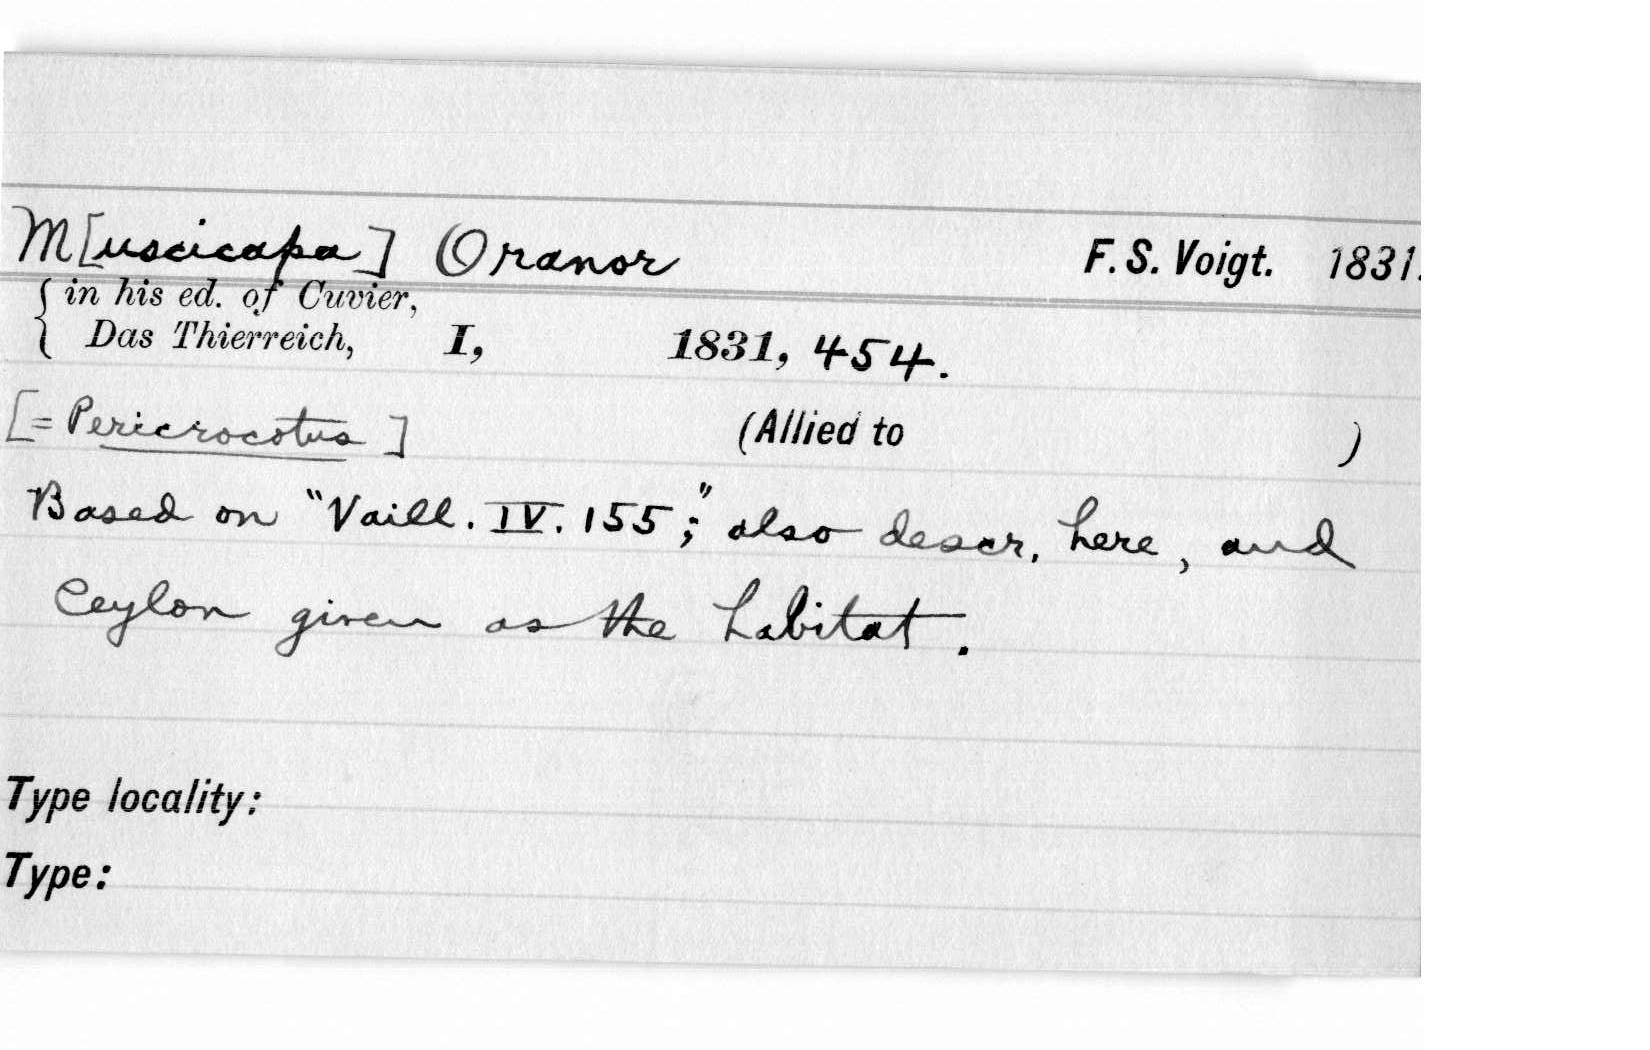 M[uscicapa] Oranor F. S. Voigt. 1831.
{ in his ed. of Cuvier,
Das Thierreich, I, 1831, 454.
[= Pericrocotus] (Allied to )
Based on "Vaill. IV. 155;" also descr. here, and
Ceylon given as the habitat.
Type locality:
Type: